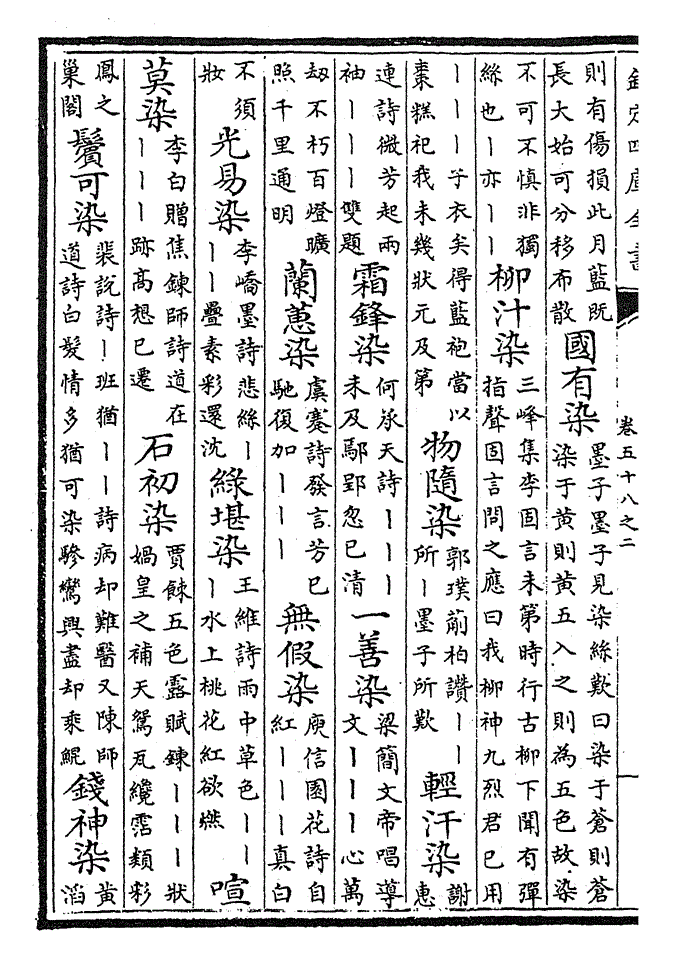 欽定四庫全書 卷五十八之二
則有傷損此月藍既
長大始可分移布散
國有染
墨子墨子見染絲歎曰染于蒼則蒼
染于黃則黃五入之則為五色故染
不可不慎非獨
絲也丨亦丨丨
柳汁染
三峰集李固言未第時行古柳下聞有彈
指聲固言問之應曰我柳神九烈君已用
丨丨丨子衣矣得藍袍當以
棗糕祀我未幾狀元及第
物隨染
郭璞萴柏讚丨丨
所丨墨子所歎
輕汗染
謝
惠
連詩微芳起兩
袖丨丨丨雙題
霜鋒染
何承天詩丨丨丨
未及鄢郢忽已清
一善染
梁簡文帝唱導
文丨丨丨心萬
劫不朽百燈曠
照千里通明
蘭蕙染
虞騫詩發言芳已
馳復加丨丨丨
無假染
庾信園花詩自
紅丨丨丨真白
不須
妝
光易染
李嶠墨詩悲絲丨
丨丨疊素彩還沈
綠堪染
王維詩雨中草色丨丨
丨水上桃花紅欲燃
喧
莫染
李白贈焦鍊師詩道在
丨丨丨跡高想已遷
石初染
賈餗五色露賦鍊丨丨丨狀
媧皇之補天鴛瓦纔霑類彩
鳳之
巢閣
鬢可染
裴說詩丨班猶丨丨詩病却難醫又陳師
道詩白髮情多猶可染驂鸞興盡却乘鯤
錢神染
黃
滔